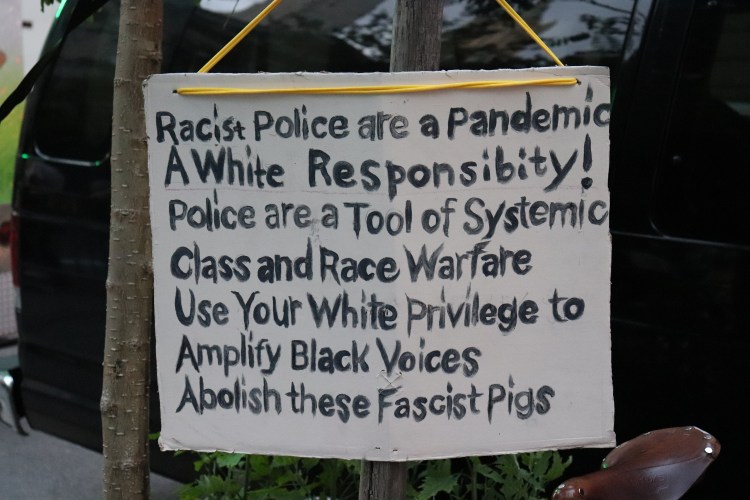 Racist Police are a Pandemic
A White Responsibity!
Police are a Tool of Systemic
Class and Race Warfare
Use Your White Privilege to
Amplify Black Voices
Abolish these Fascist Pigs